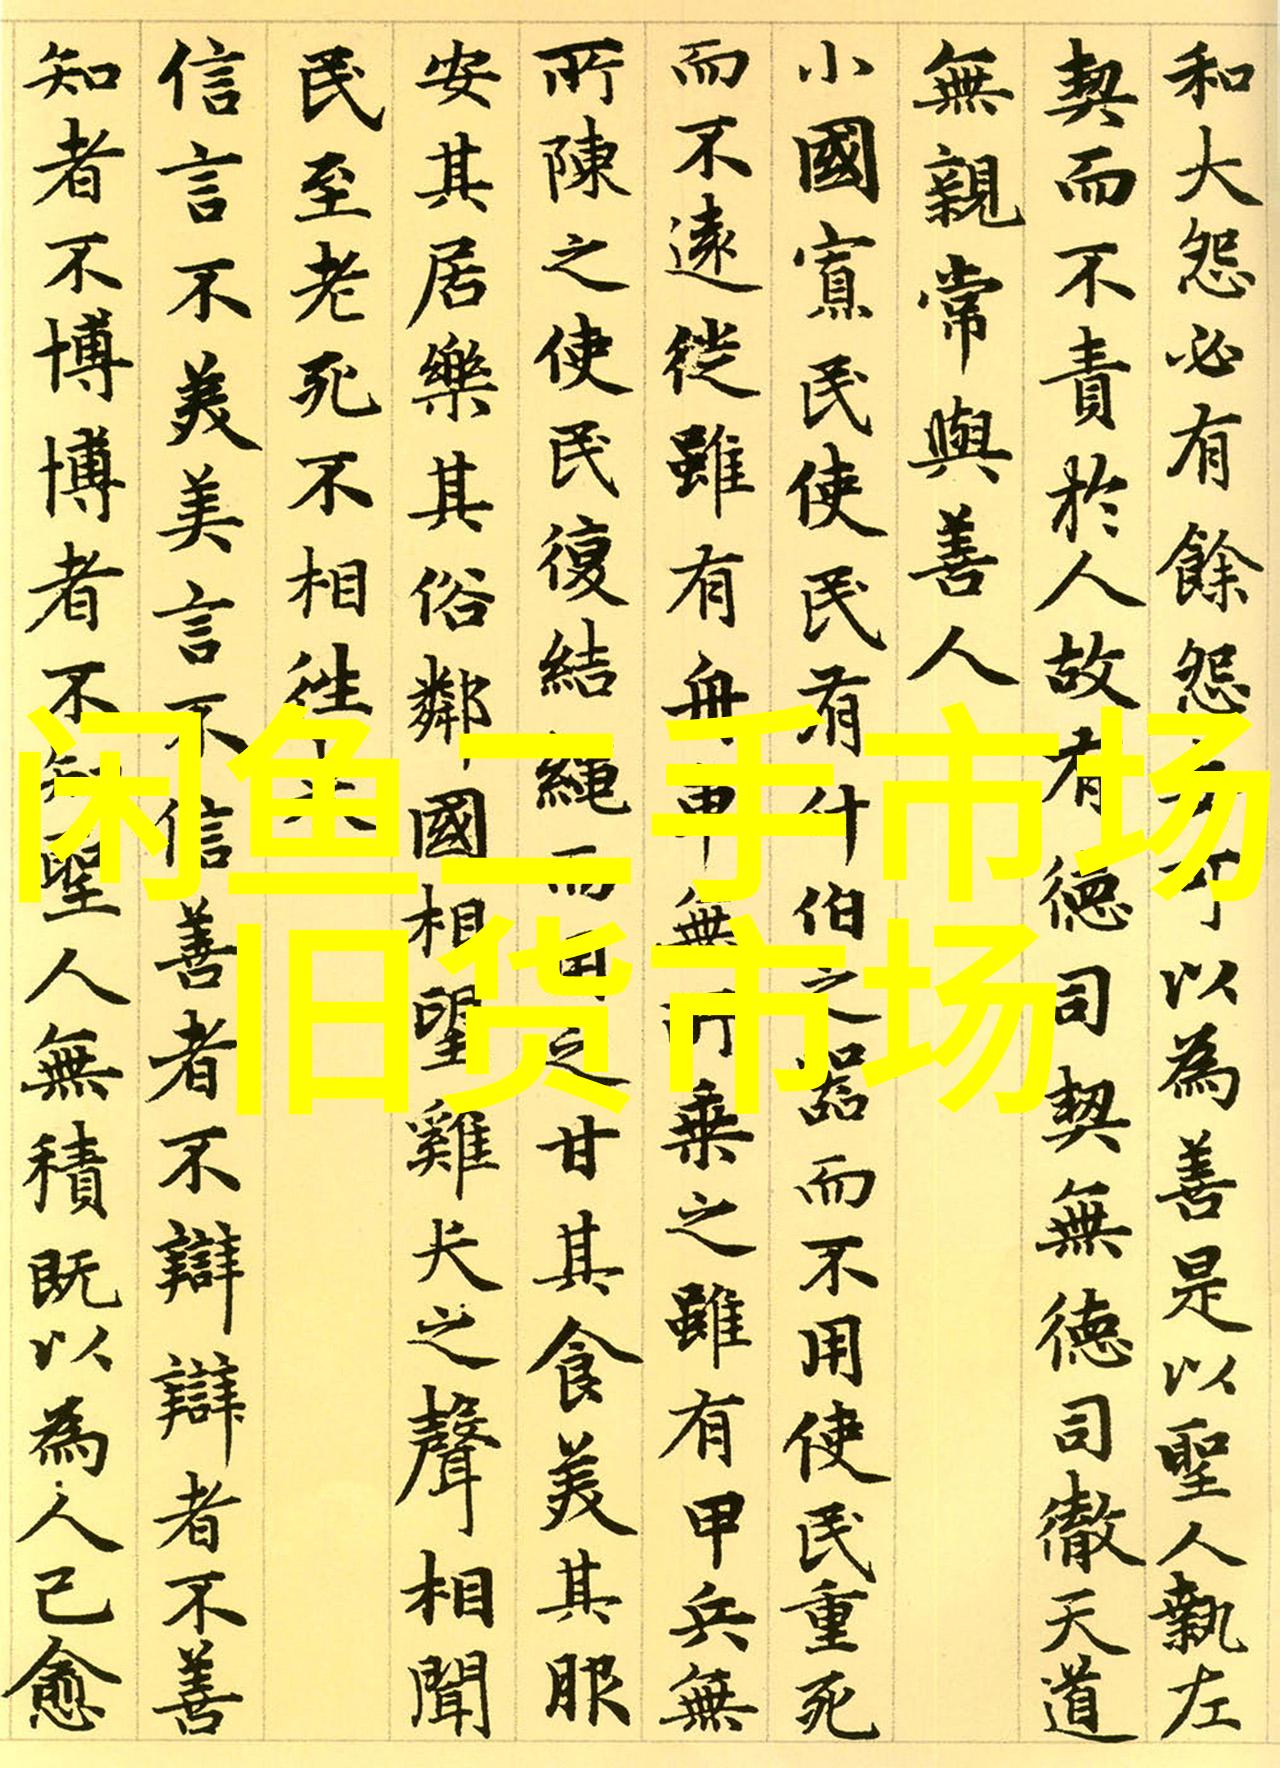 和大怨必有餘怨安可以為善是以聖人執左
契而不責於人故有德司契無德司徹天道
無親常與善人
小國寡民使民有什伯之器而不用使民重死
而不遠徙雖有舟車無所乗之雖有甲兵無
所陳之使民復結繩而用之甘其食美其服
安其居樂其俗鄰國相望雞犬之聲相聞
民至老死不相往来
信言不美美言不信善者不辯辯者不善
知者不博博者不知聖人無積既以為人己愈
闲鱼二手市场
旧货市场